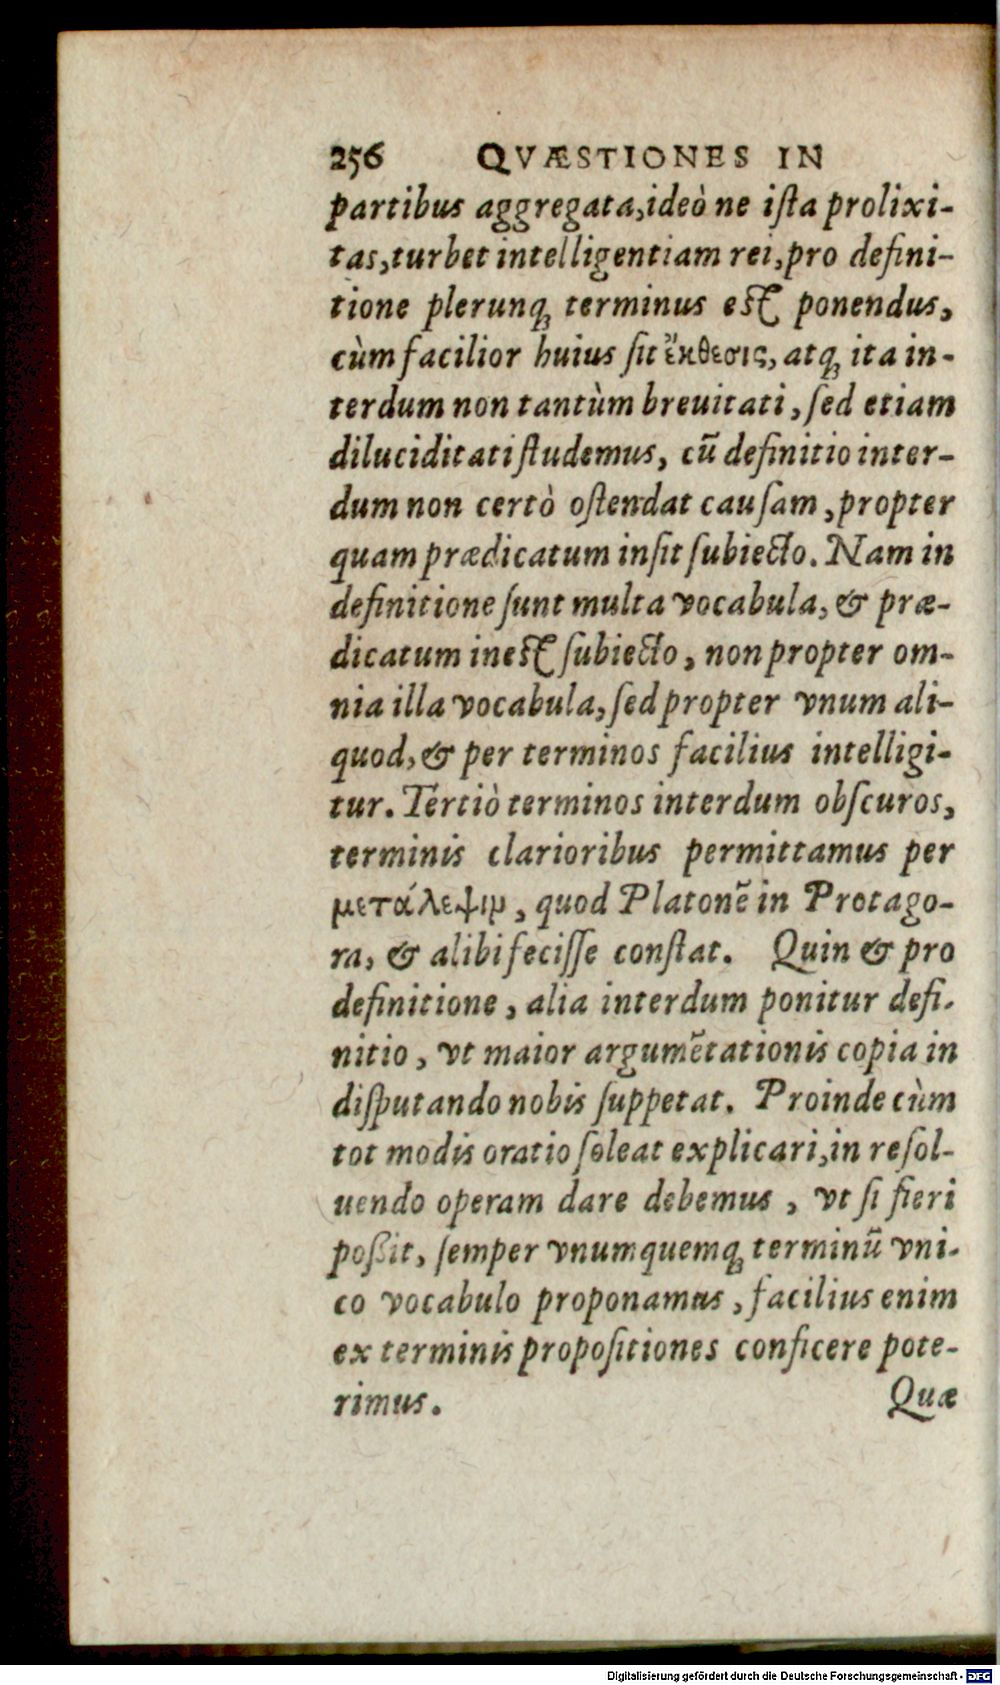 256 QVÆSTIONES IN
partibus aggregata, ideò ne iſta prolixi-
tas, turbet intelligentiam rei, pro defini-
tione plerunq; terminus eſt ponendus,
cùm facilior huius ſit ἔκθεσις, atq; ita in-
terdum non tantùm breuitati, ſed etiam
diluciditati ſtudemus, cū definitio inter-
dum non certò oſtendat cauſam, propter
quam prædicatum inſit ſubiecto. Nam in
definitione ſunt multa vocabula, & præ-
dicatum ineſt ſubiecto, non propter om-
nia illa vocabula, ſed propter vnum ali-
quod, & per terminos facilius intelligi-
tur. Tertiò terminos interdum obſcuros,
terminis clarioribus permittamus per
μετάλεψιμ, quod Platonē in Protago-
ra, & alibi feciſſe conſtat. Quin & pro
definitione, alia interdum ponitur defi-
nitio, vt maior argumētationis copia in
diſputando nobis ſuppetat. Proinde cùm
tot modis oratio ſoleat explicari, in reſol-
uendo operam dare debemus, vt ſi fieri
poßit, ſemper vnumquemq; terminū vni-
co vocabulo proponamus, facilius enim
ex terminis propoſitiones conficere pote-
rimus. Quæ
Digitalisierung gefördert durch die Deutsche Forschungsgemeinschaft - DFG